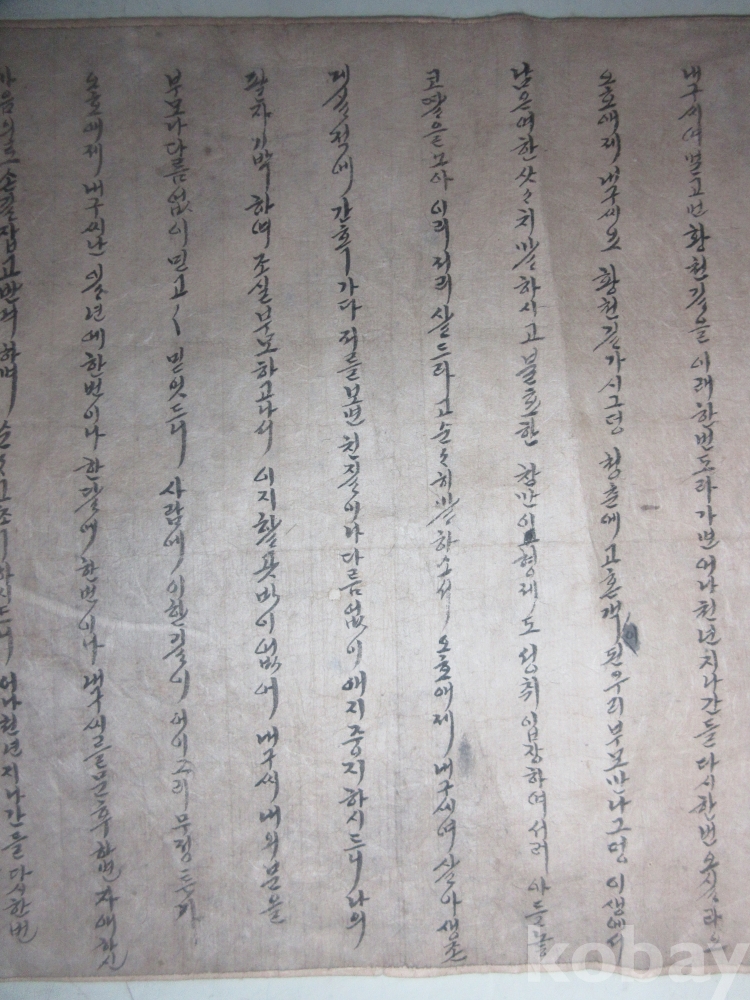 내구씨여 멀고 먼 황천길을 이래 한번 도라가면 어나 천년 지나간들 다시 한번 오실라요
오호 애제 내구씨요 황천길 가시그덩 청춘에 고혼객 된 우리 부모 만나그덩 이생에서
남은 여한 삿삿치 말하시고 불효한 창만이 형제도 성취 입장하여 서리 아들놈
코딸을 모아 이리저리 살드라고 순순히 말하소서 오호 애제 내구씨여 살아생존
제 실척에 간혹 가다 저를 보면 친질이나 다름없이 애지중지하시드니 나의
팔자 기박하여 조실부모하고 나서 이지할 곳 바이 없어 내구씨 내외분을
부모나 다름없이 믿고 믿엇드니 사람에 이한 길이 어이 그리 무정튼가
오호 애제 내구씨난 일년에 한번이나 한달에 한번이나 내구씨를 문후하면 자애하신
마음으로 손길 잡고 반겨하며 하시드니 어나 천년 지나간들 다시 한번
kobay